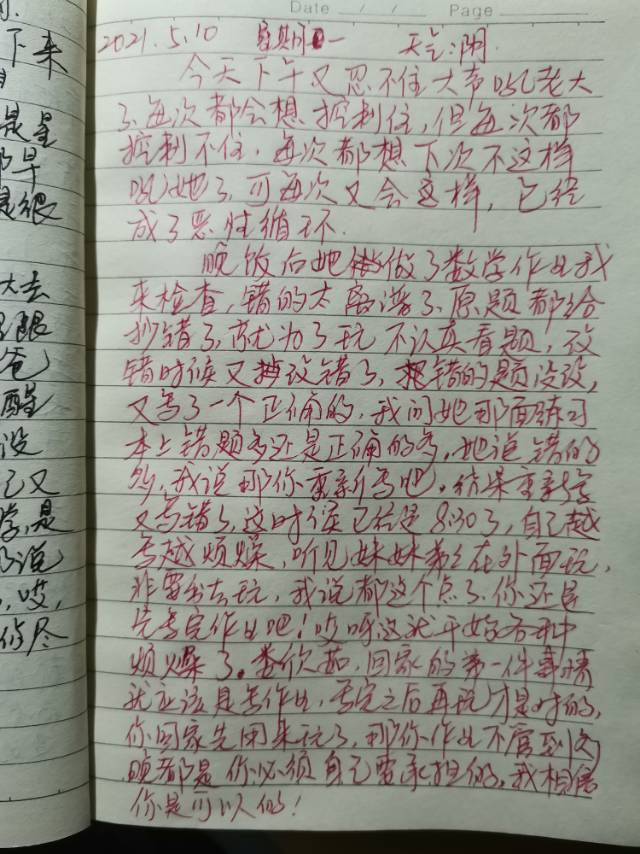 Date / / Page
2021.5.10 星期一 天气:阴
今天下午又忍不住大声吼老大
了,每次都会想控制住,但每次都
控制不住,每次都想下次不这样
吼她了,可每次又会这样,已经
成了恶性循环.
晚饭后她做了数学作业我
来检查,错的太离谱了,原题都给
抄错了,就为了玩不认真看题,改
错时候又改错了,把错的题没改,
又写了一个正确的,我问她那面练习
本上错题多还是正确的多,她说错的
多,我说那你重新写吧,结果重新写
又写错了,这时候已经是8:30了,自己越
写越烦燥,听见妹妹弟弟在外面玩,
非要出去玩,我说都这个点了你还是
先写完作业吧!哎呀这就开始各种
烦燥了。娄欣茹,回家的第一件事情
就应该是写作业,写完之后再玩才是对的,
你回家先闹来玩了,那你作业不管到几
点都是你必须自己要承担的,我相信
你是可以的!
下来
是星
早
是很
大去
眼
爸
醒
没
己又
学,是
说
,哎,
尽